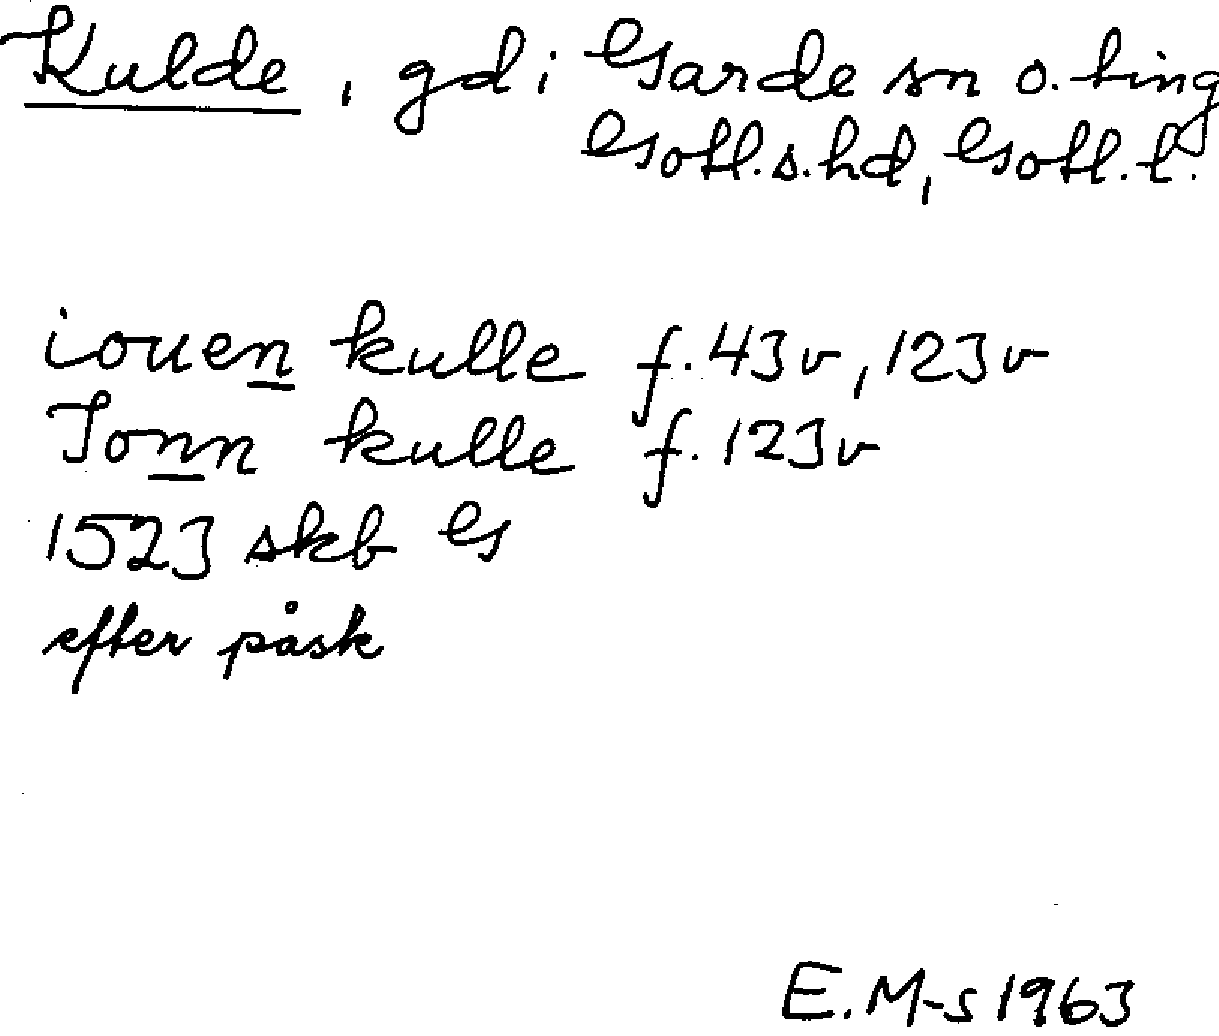 Kulde, gd i Garde sn o. ting
Gotl.s.hd, Gotl.l.
iouen kulle f.43v, 123v
Jonn kulle f.123v
1523 skb G
efter påsk
E.M-s 1963